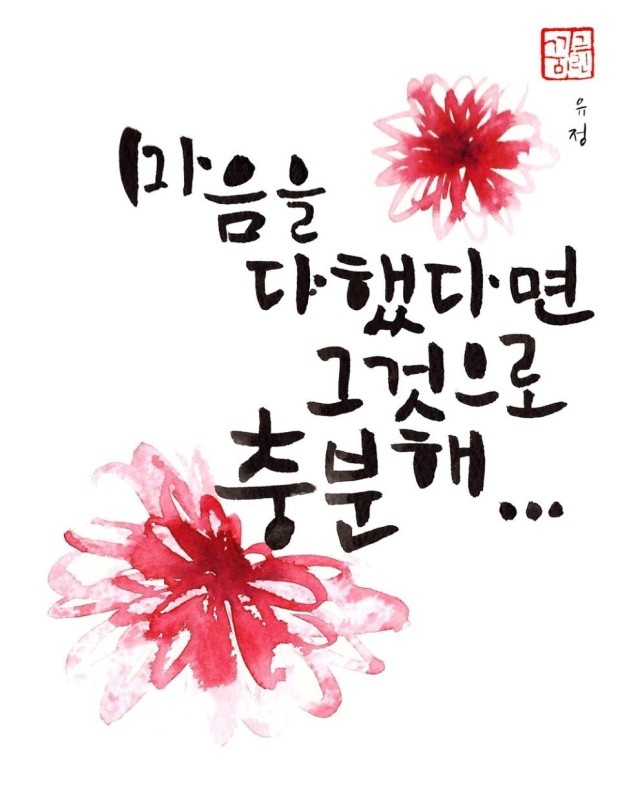 꿈그린
유정
마음을
다했다면
그것으로
충분해...